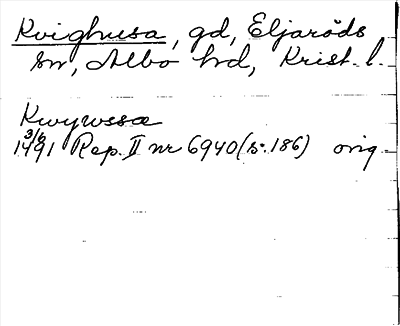 Kvighusa, gd, Eljaröds
sn, Albo hd, Krist. l.
Kwywssa
3/6
1491 Rep. II nr 6940 (s. 186) orig.